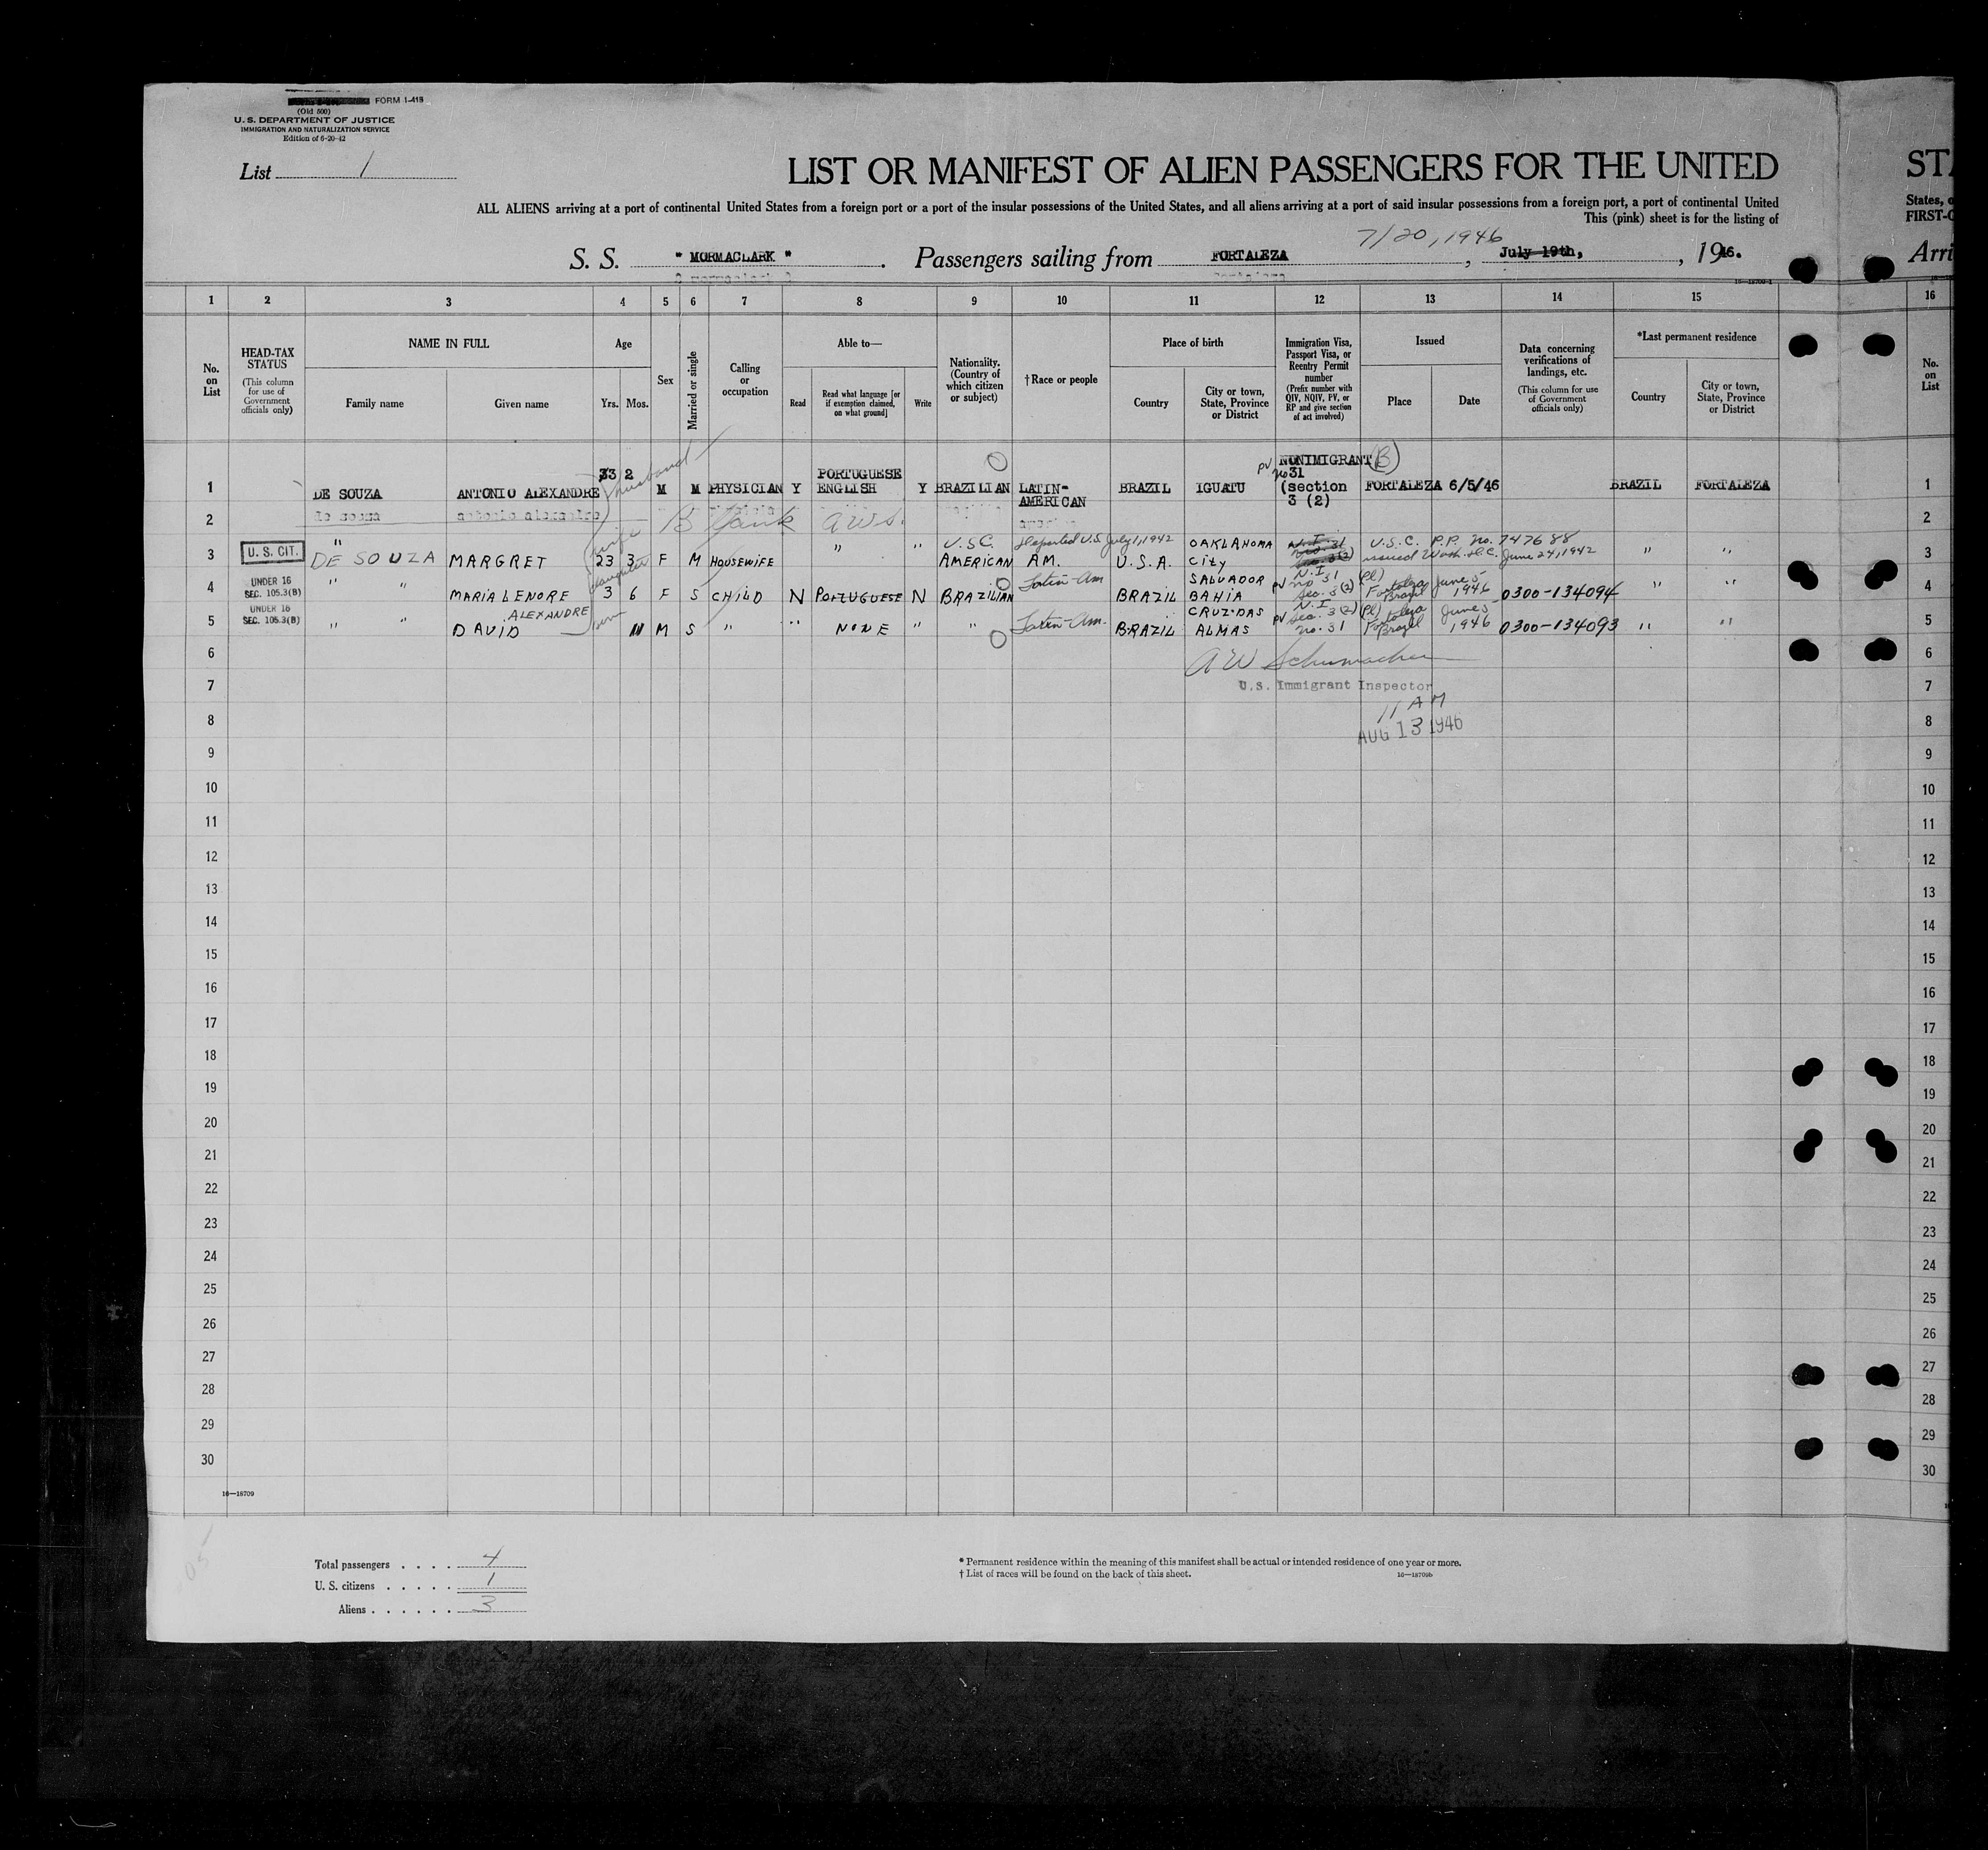 FORM I-418
(Old 500)
U. S. DEPARTMENT OF JUSTICE
IMMIGRATION AND NATURALIZATION SERVICE
Edition of 6-20-42
List 1
LIST OR MANIFEST OF ALIEN PASSENGERS FOR THE UNITED
ALL ALIENS arriving at a port of continental United States from a foreign port or a port of the insular possessions of the United States, and all aliens arriving at a port of said insular possessions from a foreign port, a port of continental United
This (pink) sheet is for the listing of
7/20, 1946
S. S. " MORMACLARK " . Passengers sailing from FORTALEZA , July 19th, , 1946.
STA
States, o
FIRST-C
Arri
1 2 3 4 5 6 7 8 9 10 11 12 13 14 15 16
No. on List
HEAD-TAX STATUS
(This column for use of Government officials only)
NAME IN FULL
Family name Given name
Age
Yrs. Mos.
Sex
Married or single
Calling or occupation
Able to—
Read
Read what language [or if exemption claimed, on what ground]
Write
Nationality. (Country of which citizen or subject)
†Race or people
Place of birth
Country
City or town, State, Province or District
Immigration Visa, Passport Visa, or Reentry Permit number
(Prefix number with QIV, NQIV, PV, or RP and give section of act involved)
Issued
Place Date
Data concerning verifications of landings, etc.
(This column for use of Government officials only)
*Last permanent residence
Country
City or town, State, Province or District
No. on List
1 DE SOUZA ANTONIO ALEXANDRE 33 2 husband M M PHYSICIAN Y PORTUGUESE ENGLISH Y BRAZILIAN LATIN-AMERICAN BRAZIL IGUATU PV NONIMIGRANT (B) no 31 (section 3 (2) FORTALEZA 6/5/46 BRAZIL FORTALEZA 1
2 Blank AWS. 2
3 U. S. CIT. " DE SOUZA MARGRET wife 23 3 F M HOUSEWIFE " " U.S.C. AMERICAN Departed U.S. July 1, 1942 AM. U.S.A. OAKLAHOMA City N.I. no. 31 Sec. 3(2) U.S.C. P.P. no. 747688 issued Wash. D.C. June 24, 1942 " " 3
4 UNDER 16 SEC. 105.3(B) " " MARIA LENORE daughter 3 6 F S CHILD N PORTUGUESE N BRAZILIAN Latin-Am BRAZIL SALVADOR BAHIA PV N.I. no 31 Sec. 3(2) (Pl) Fortaleza Brazil June 5 1946 0300-134094 " " 4
5 UNDER 16 SEC. 105.3(B) " " ALEXANDRE DAVID son 11 M S " " NONE " " Latin-Am. BRAZIL CRUZ·DAS ALMAS PV N.I. Sec. 3(2) no. 31 (Pl) Fortaleza Brazil June 5 1946 0300-134093 " " 5
6 AW Schumacher 6
7 U.S. Immigrant Inspector 7
8 11 AM 8
AUG 13 1946
9 9
10 10
11 11
12 12
13 13
14 14
15 15
16 16
17 17
18 18
19 19
20 20
21 21
22 22
23 23
24 24
25 25
26 26
27 27
28 28
29 29
30 30
16—18709
Total passengers . . . . 4
U. S. citizens . . . . . 1
Aliens . . . . . . 3
* Permanent residence within the meaning of this manifest shall be actual or intended residence of one year or more.
† List of races will be found on the back of this sheet. 16—18709b